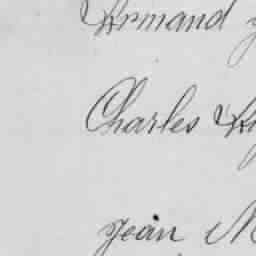 Armand
Charles
Jean